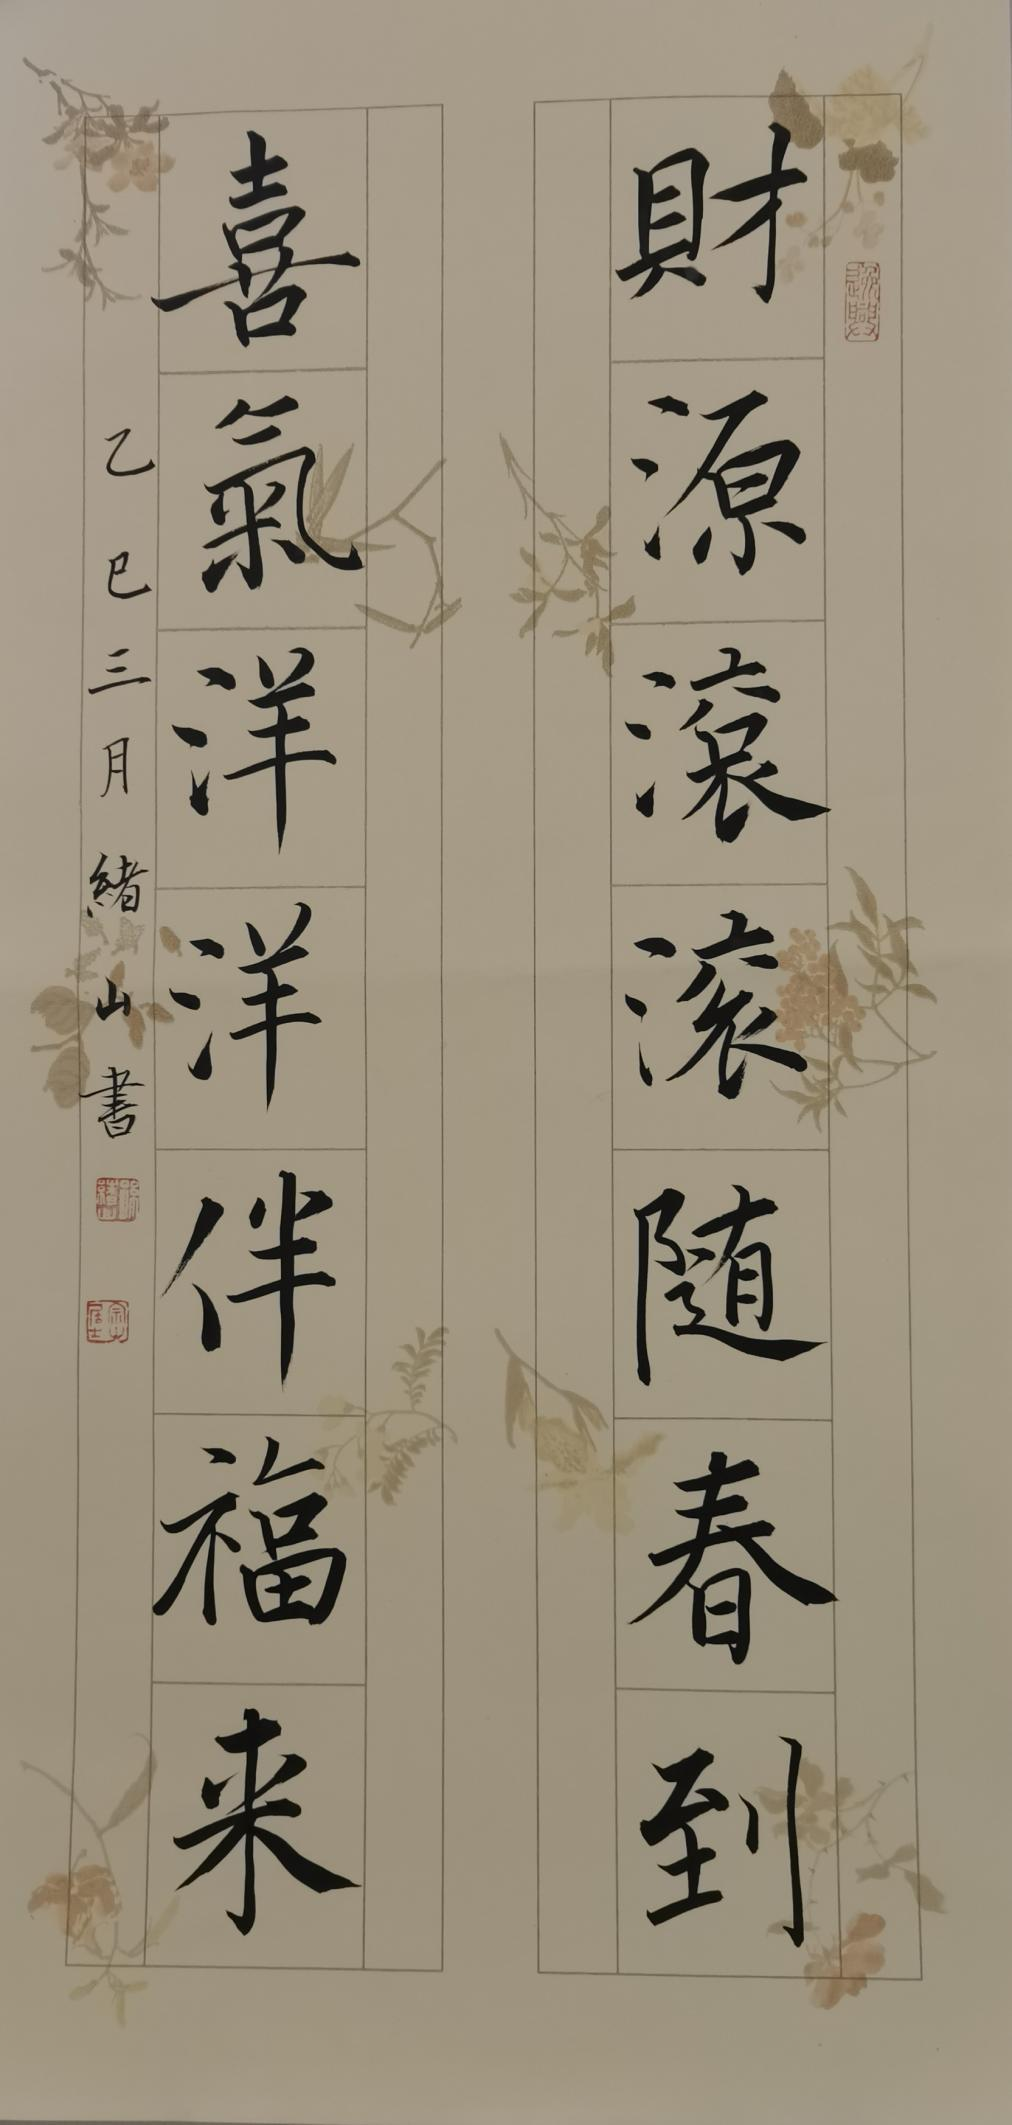 財源滾滚随春到
喜氣洋洋伴福来
乙巳三月緒山書